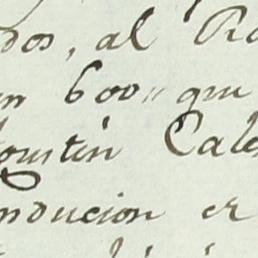 dos, al R
en 600 que
oustin Cale
nducion er